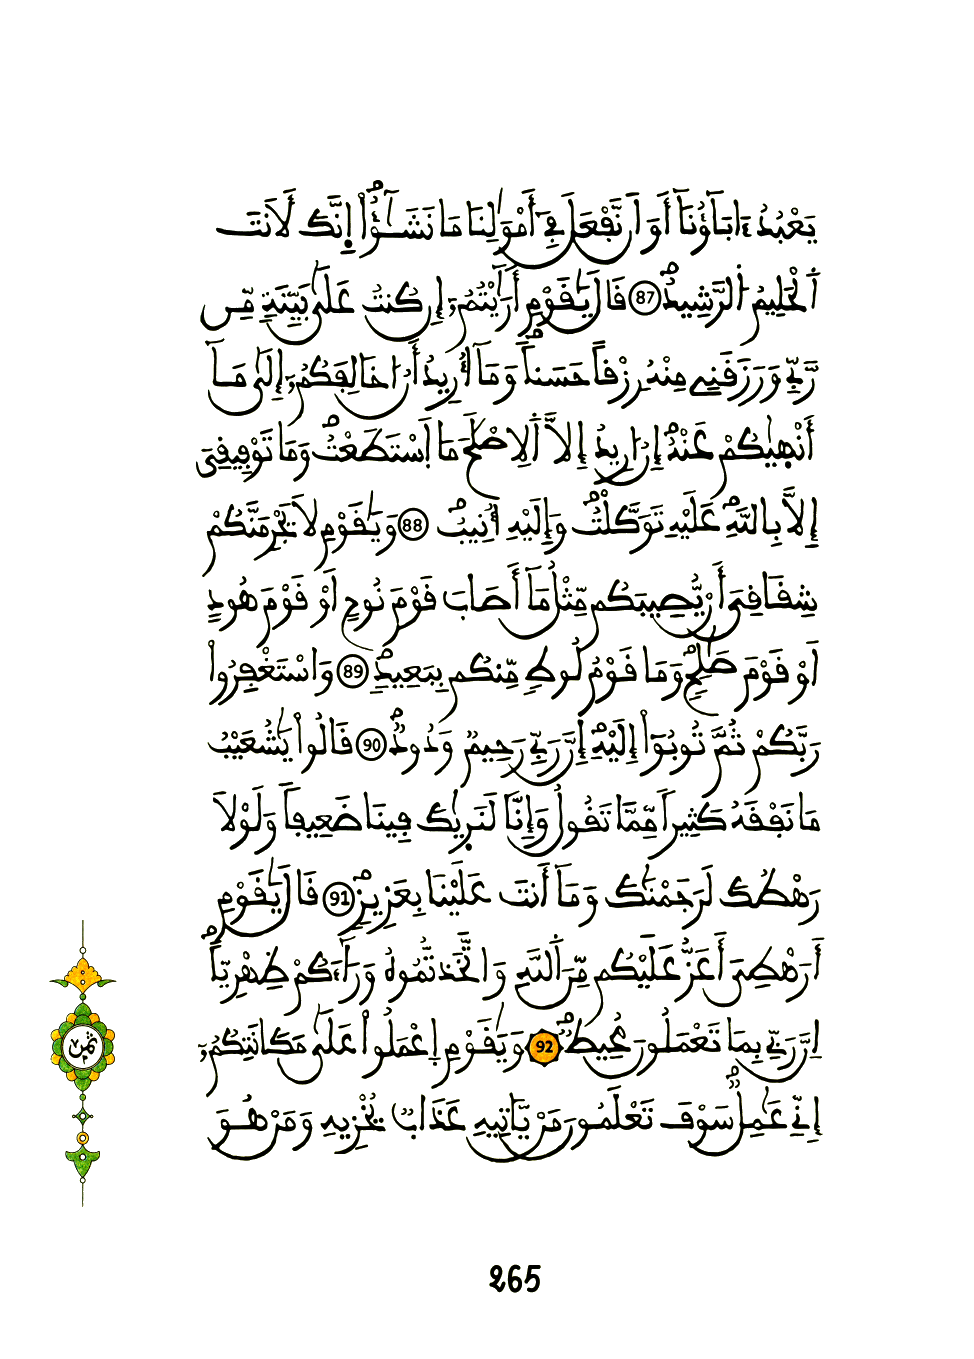 يَعْبُدُ ءَابَآؤُنَآ أَوَ اَن نَّفْعَلَ فِےٓ أَمْوَٰلِنَا مَا نَشَٰٓؤُاْ إِنَّكَ لَأَنتَ
اَ۬لْحَلِيمُ اُ۬لرَّشِيدُ 87 قَالَ يَٰقَوْمِ أَرَٰيْتُمُۥٓ إِن كُنتُ عَلَىٰ بَيِّنَةٖ مِّن
رَّبِّے وَرَزَقَنِے مِنْهُ رِزْقاً حَسَناٗ وَمَآ أُرِيدُ أَنُ ا۟خَالِفَكُمُۥٓ إِلَىٰ مَآ
أَنْه۪يٰكُمْ عَنْهُ إِنُ ا۟رِيدُ إِلَّا اَ۬لِاصْلَٰحَ مَا اَ۪سْتَطَعْتُ وَمَا تَوْفِيقِيَ
إِلَّا بِاللَّهِ عَلَيْهِ تَوَكَّلْتُ وَإِلَيْهِ أُنِيبُ 88 وَيَٰقَوْمِ لَا يَجْرِمَنَّكُمْ
شِقَاقِيَ أَنْ يُّصِيبَكُم مِّثْلُ مَآ أَصَابَ قَوْمَ نُوحٍ اَوْ قَوْمَ هُودٍ
اَوْ قَوْمَ صَٰلِحٖ وَمَا قَوْمُ لُوطٖ مِّنكُم بِبَعِيدٖ 89 وَاسْتَغْفِرُواْ
رَبَّكُمْ ثُمَّ تُوبُوٓاْ إِلَيْهِ إِنَّ رَبِّے رَحِيمٞ وَدُودٞ 90 قَالُواْ يَٰشُعَيْبُ
مَا نَفْقَهُ كَثِيراٗ مِّمَّا تَقُولُ وَإِنَّا لَنَر۪يٰكَ فِينَا ضَعِيفاٗ وَلَوْلَا
رَهْطُكَ لَرَجَمْنَٰكَ وَمَآ أَنتَ عَلَيْنَا بِعَزِيزٖ 91 قَالَ يَٰقَوْمِ
أَرَهْطِيَ أَعَزُّ عَلَيْكُم مِّنَ اَ۬للَّهِ وَاتَّخَذتُّمُوهُ وَرَآءَكُمْ ظِهْرِيّاً
اِنَّ رَبِّے بِمَا تَعْمَلُونَ مُحِيطٞ 92 وَيَٰقَوْمِ اِ۪عْمَلُواْ عَلَىٰ مَكَانَتِكُمُۥٓ
إِنِّے عَٰمِلٞ سَوْفَ تَعْلَمُونَ مَنْ يَّاتِيهِ عَذَابٞ يُخْزِيهِ وَمَنْ هُوَ
ثمن
265